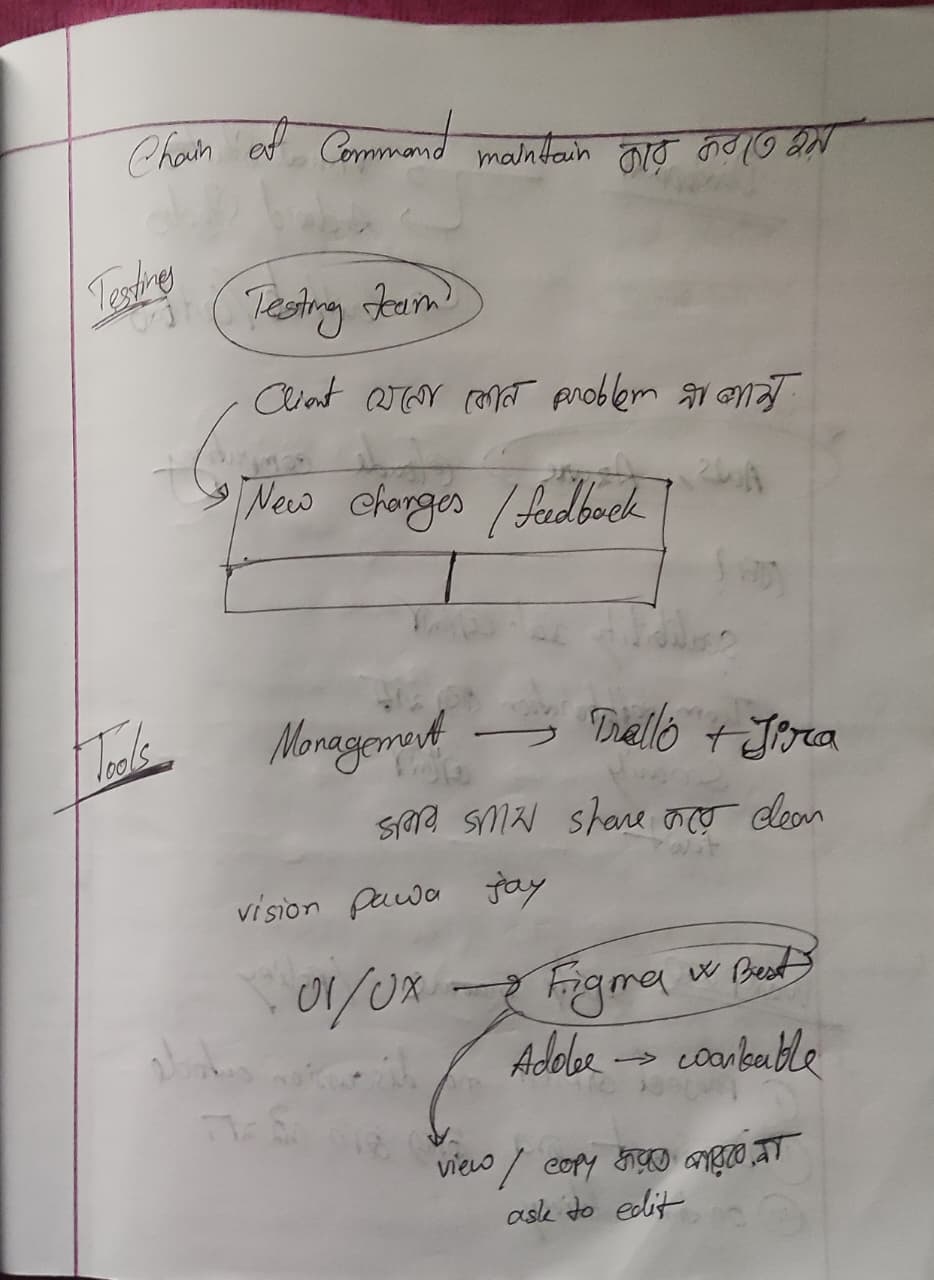 Chain of Command maintain করে করতে হয়
Testing
Testing team
Client যেনো কোন problem না পায়
New changes / feedback
Tools
Management → Trello + Jira
সবার সাথে share করে clean
vision pawa jay
UI/UX → Figma Best
Adobe → workable
view / copy করতে পারবে না
ask to edit